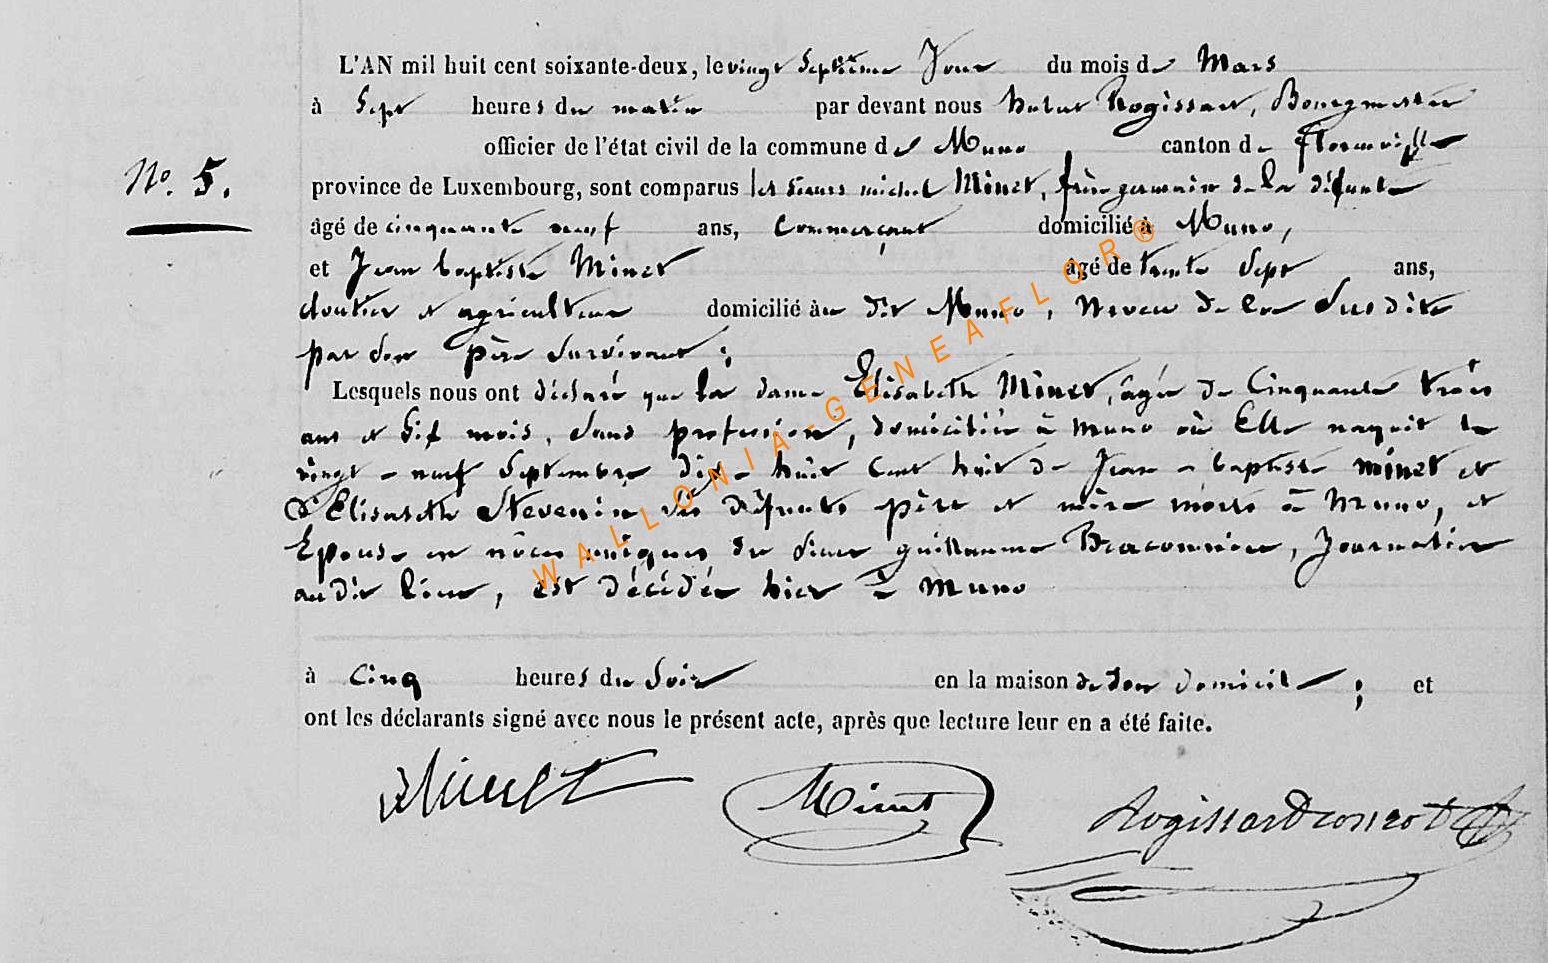 L'AN mil huit cent soixante-deux, le vingt Septième Jour du mois de Mars
à Sept heures du matin par devant nous Hubert Rogissart, Bourgmestre
officier de l'état civil de la commune de Muno canton de Florenville
No. 5.
province de Luxembourg, sont comparus les Sieurs michel Minet, frère germain de la défunte
âgé de cinquante neuf ans, Commerçant domicilié à Muno,
et Jean baptiste Minet âgé de trente Sept ans,
cloutier et agriculteur domicilié au dit Muno, Neveu de la Susdite
par son père Survivant ;
Lesquels nous ont déclaré que la dame Elisabeth Minet, âgée de Cinquante trois
ans et Six mois, Sans profession, domiciliée à Muno où Elle naquit le
vingt-neuf Septembre dix-huit Cent huit de Jean-baptiste Minet et
d'Elisabeth Stevenin ses défunts père et mère morts à Muno, et
Epouse en nôces uniques du Sieur guillaume Braconnier, Journalier
au dit lieu, est décédée hier à Muno
à Cinq heures du Soir en la maison de Son domicile ; et
ont les déclarants signé avec nous le présent acte, après que lecture leur en a été faite.
Minet Minet Rogissart
WALLONIA-GENEAFLOR®